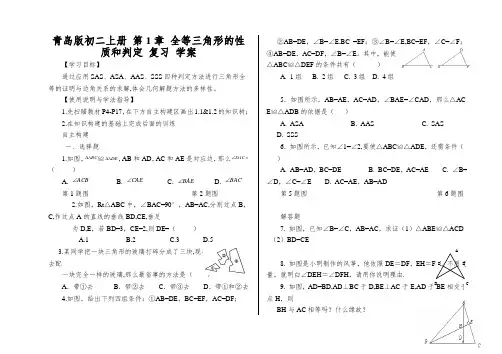 青岛版初二上册 第1章 全等三角形的性
质和判定 复习 学案
【学习目标】
通过应用SAS、ASA、AAS、SSS四种判定方法进行三角形全
等的证明与边角关系的求解,体会几何解题方法的多样性。
【使用说明与学法指导】
1.先扫描教材P4-P17,在下方自主构建区画出1.1&1.2的知识树;
2.在知识构建的基础上完成后面的训练
自主构建
一、选择题
1.如图,△ABC≌△ADE,AB和AD,AC和AE是对应边,那么∠DAE=
( )
A. ∠ACB B. ∠CAE C. ∠BAE D. ∠BAC
第1题图 第2题图
2.如图,Rt△ABC中,∠BAC=90°,AB=AC,分别过点B、
C,作过点A的直线的垂线BD,CE,垂足
为D,E,若BD=3,CE=2,则DE=( )
A.1 B.2 C.3 D.5
3.某同学把一块三角形的玻璃打碎分成了三块,现
去配
一块完全一样的玻璃,那么最省事的方法是(
A. 带①去 B. 带②去 C. 带③去 D. 带①和②去
4.如图,给出下列四组条件:①AB=DE,BC=EF,AC=DF;
②AB=DE,∠B=∠E.BC =EF;③∠B=∠E,BC=EF,∠C=∠F;
④AB=DE,AC=DF,∠B=∠E。其中,能使
△ABC≌△DEF的条件共有( )
A. 1组 B. 2组 C. 3组 D. 4组
5. 如图所示,AB=AE,AC=AD,∠BAE=∠CAD,那么△AC
E≌△ADB的依据是( )
A. ASA B. AAS C. SAS
D. SSS
6. 如图所示,已知∠1=∠2,要使△ABC≌△ADE,还需条件(
)
A. AB=AD,BC=DE B. BC=DE,AC=AE C. ∠B=
∠D,∠C=∠E D. AC=AE,AB=AD
第5题图 第6题图
解答题
7. 如图,已知∠B=∠C,AB=AC,求证(1)△ABE≌△ACD
(2)BD=CE
8. 如图是小明制作的风筝,他依据DE=DF,EH=F
量,就明白∠DEH=∠DFH,请用你说明理由.
9. 如图,AD=BD,AD⊥BC于D,BE⊥AC于E,AD于BE相交于
点H,则
BH与AC相等吗?什么缘故?